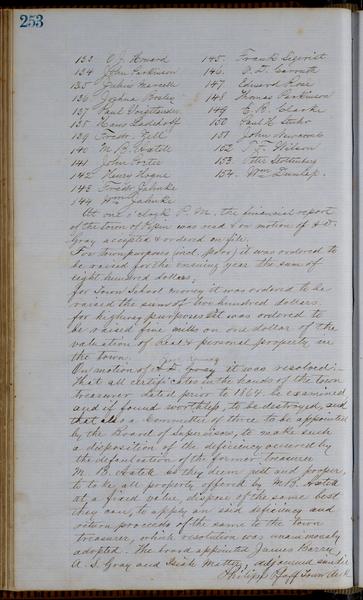 253
133 O J. Howard 145. Frank Sigvrist
134 John Parkinson 146. O. F. Carruth
135 Julius 147 Edward Rose
136 Joshua 148 Thomas Parkinson
137 Paul 149 E. R. Clarke
138 Hans 150 Paul H.
139 Fredr. Fell 151 John Newcomb
140 M. B. Axtell 152 P. F. Wilson
141 John Porter 153. Peter
142 Henry Hogue 154. Wm Dunlop.
143 Fredr Jahnke
144 Wm Jahnke
At one o'clock P. M. the financial report
of the town of Pepin was read & on motion of A. D.
Gray accepted & ordered on file.
For town purposes (incl. poor) it was ordered to
be raised for the ensuing year the sum of
eight hundred dollars,
for Town School money it was ordered to be
raised the sum of two hundred dollars.
for highway purposes it was ordered to
be raised five mills on one dollar of the
valuation of real & personal property in
the town.
On motion of A D Gray it was resolved:-
That all certificates in the hands of the town
treasurer dated prior to 1864. be examined
and if found worthless, to be destroyed, and
that also a Committee of three to be appointed
by the Board of Supervisors, to make such
a disposition of the deficiency occured by
the defalcation of the former treasurer
M. B. Axtell as they deem just and proper,
to take all property offered by M. B. Axtell
at, a fixed value, dispose of the same best
they can, to apply on said deficiency and
return proceeds of the same to the town
treasurer, which resolution was unanimously
adopted. The board appointed James Barry
A. D. Gray and adjourned
Philipp Pfaff Town Clerk